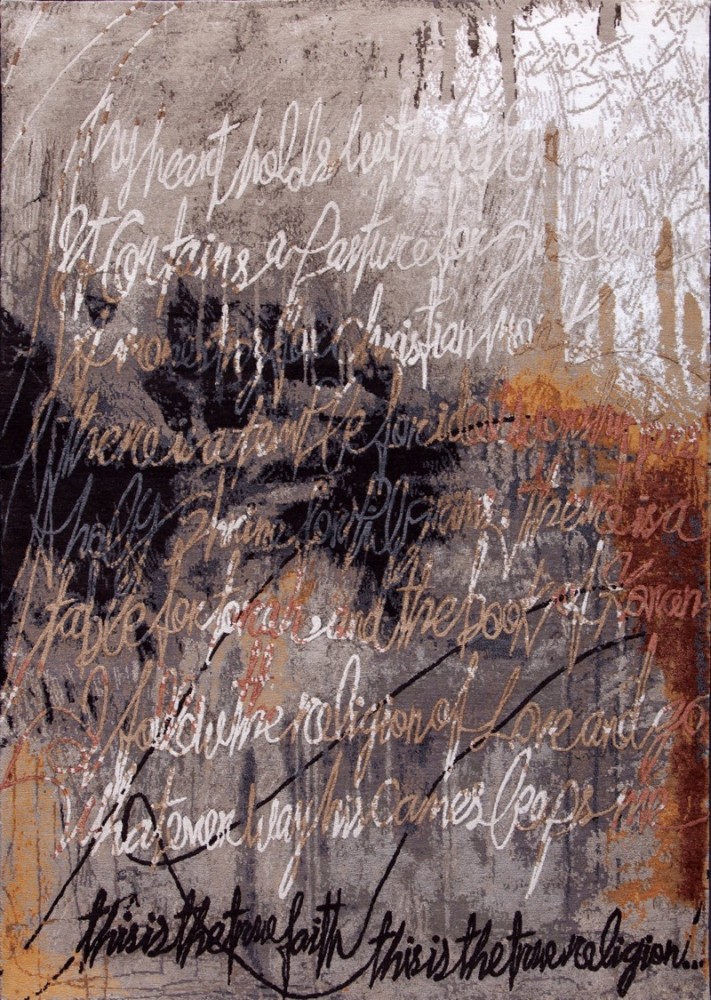 My heart holds within it every
It contains a pasture for gazelles
A monastery for Christian monks
there is a temple for idol worshippers
A holy shrine for pilgrims, there is a
table for torah, and the book of Koran
I follow the religion of Love and go
whatever way his camel leads me
this is the true faith this is the true religion...